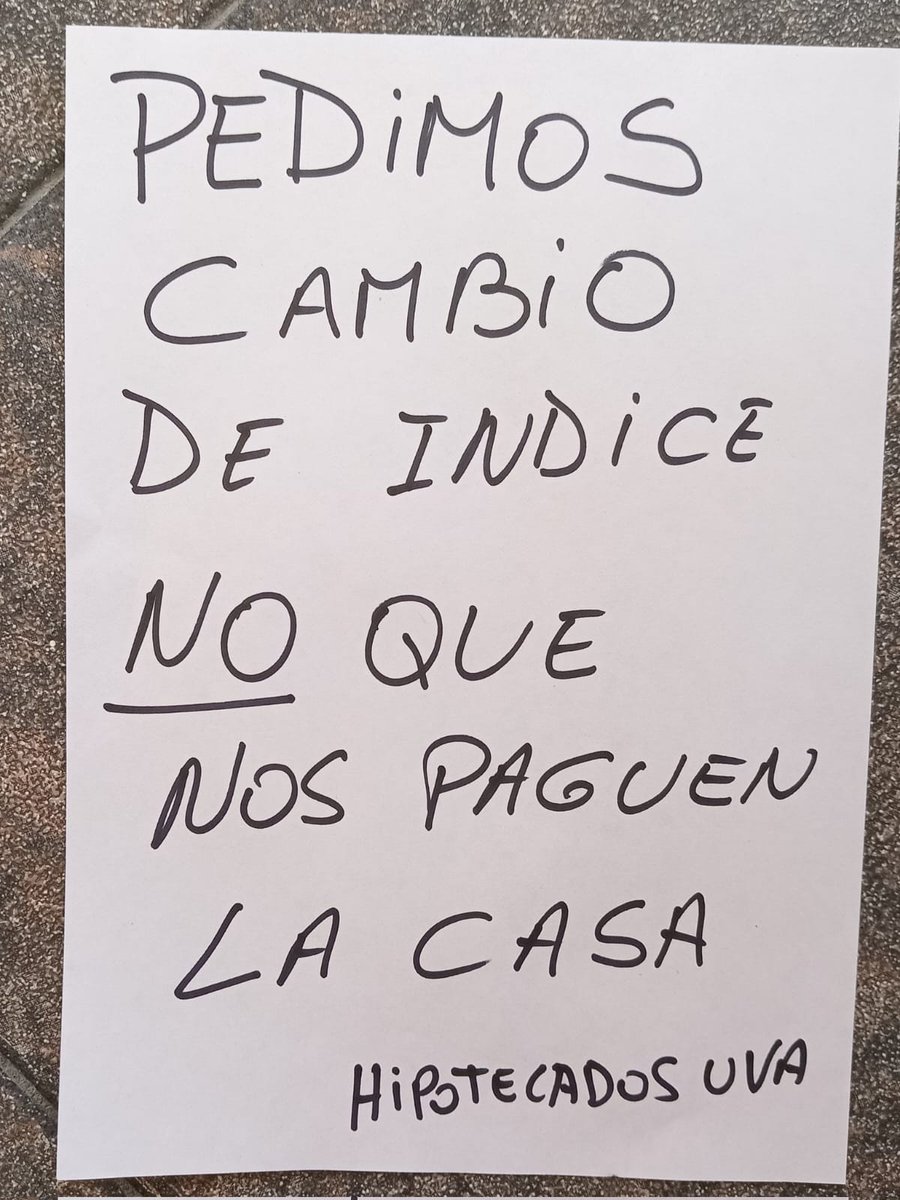 PEDiMOS
CAMBiO
DE INDiCE
NO QUE
NOS PAGUEN
LA CASA
HiPOTECADOS UVA